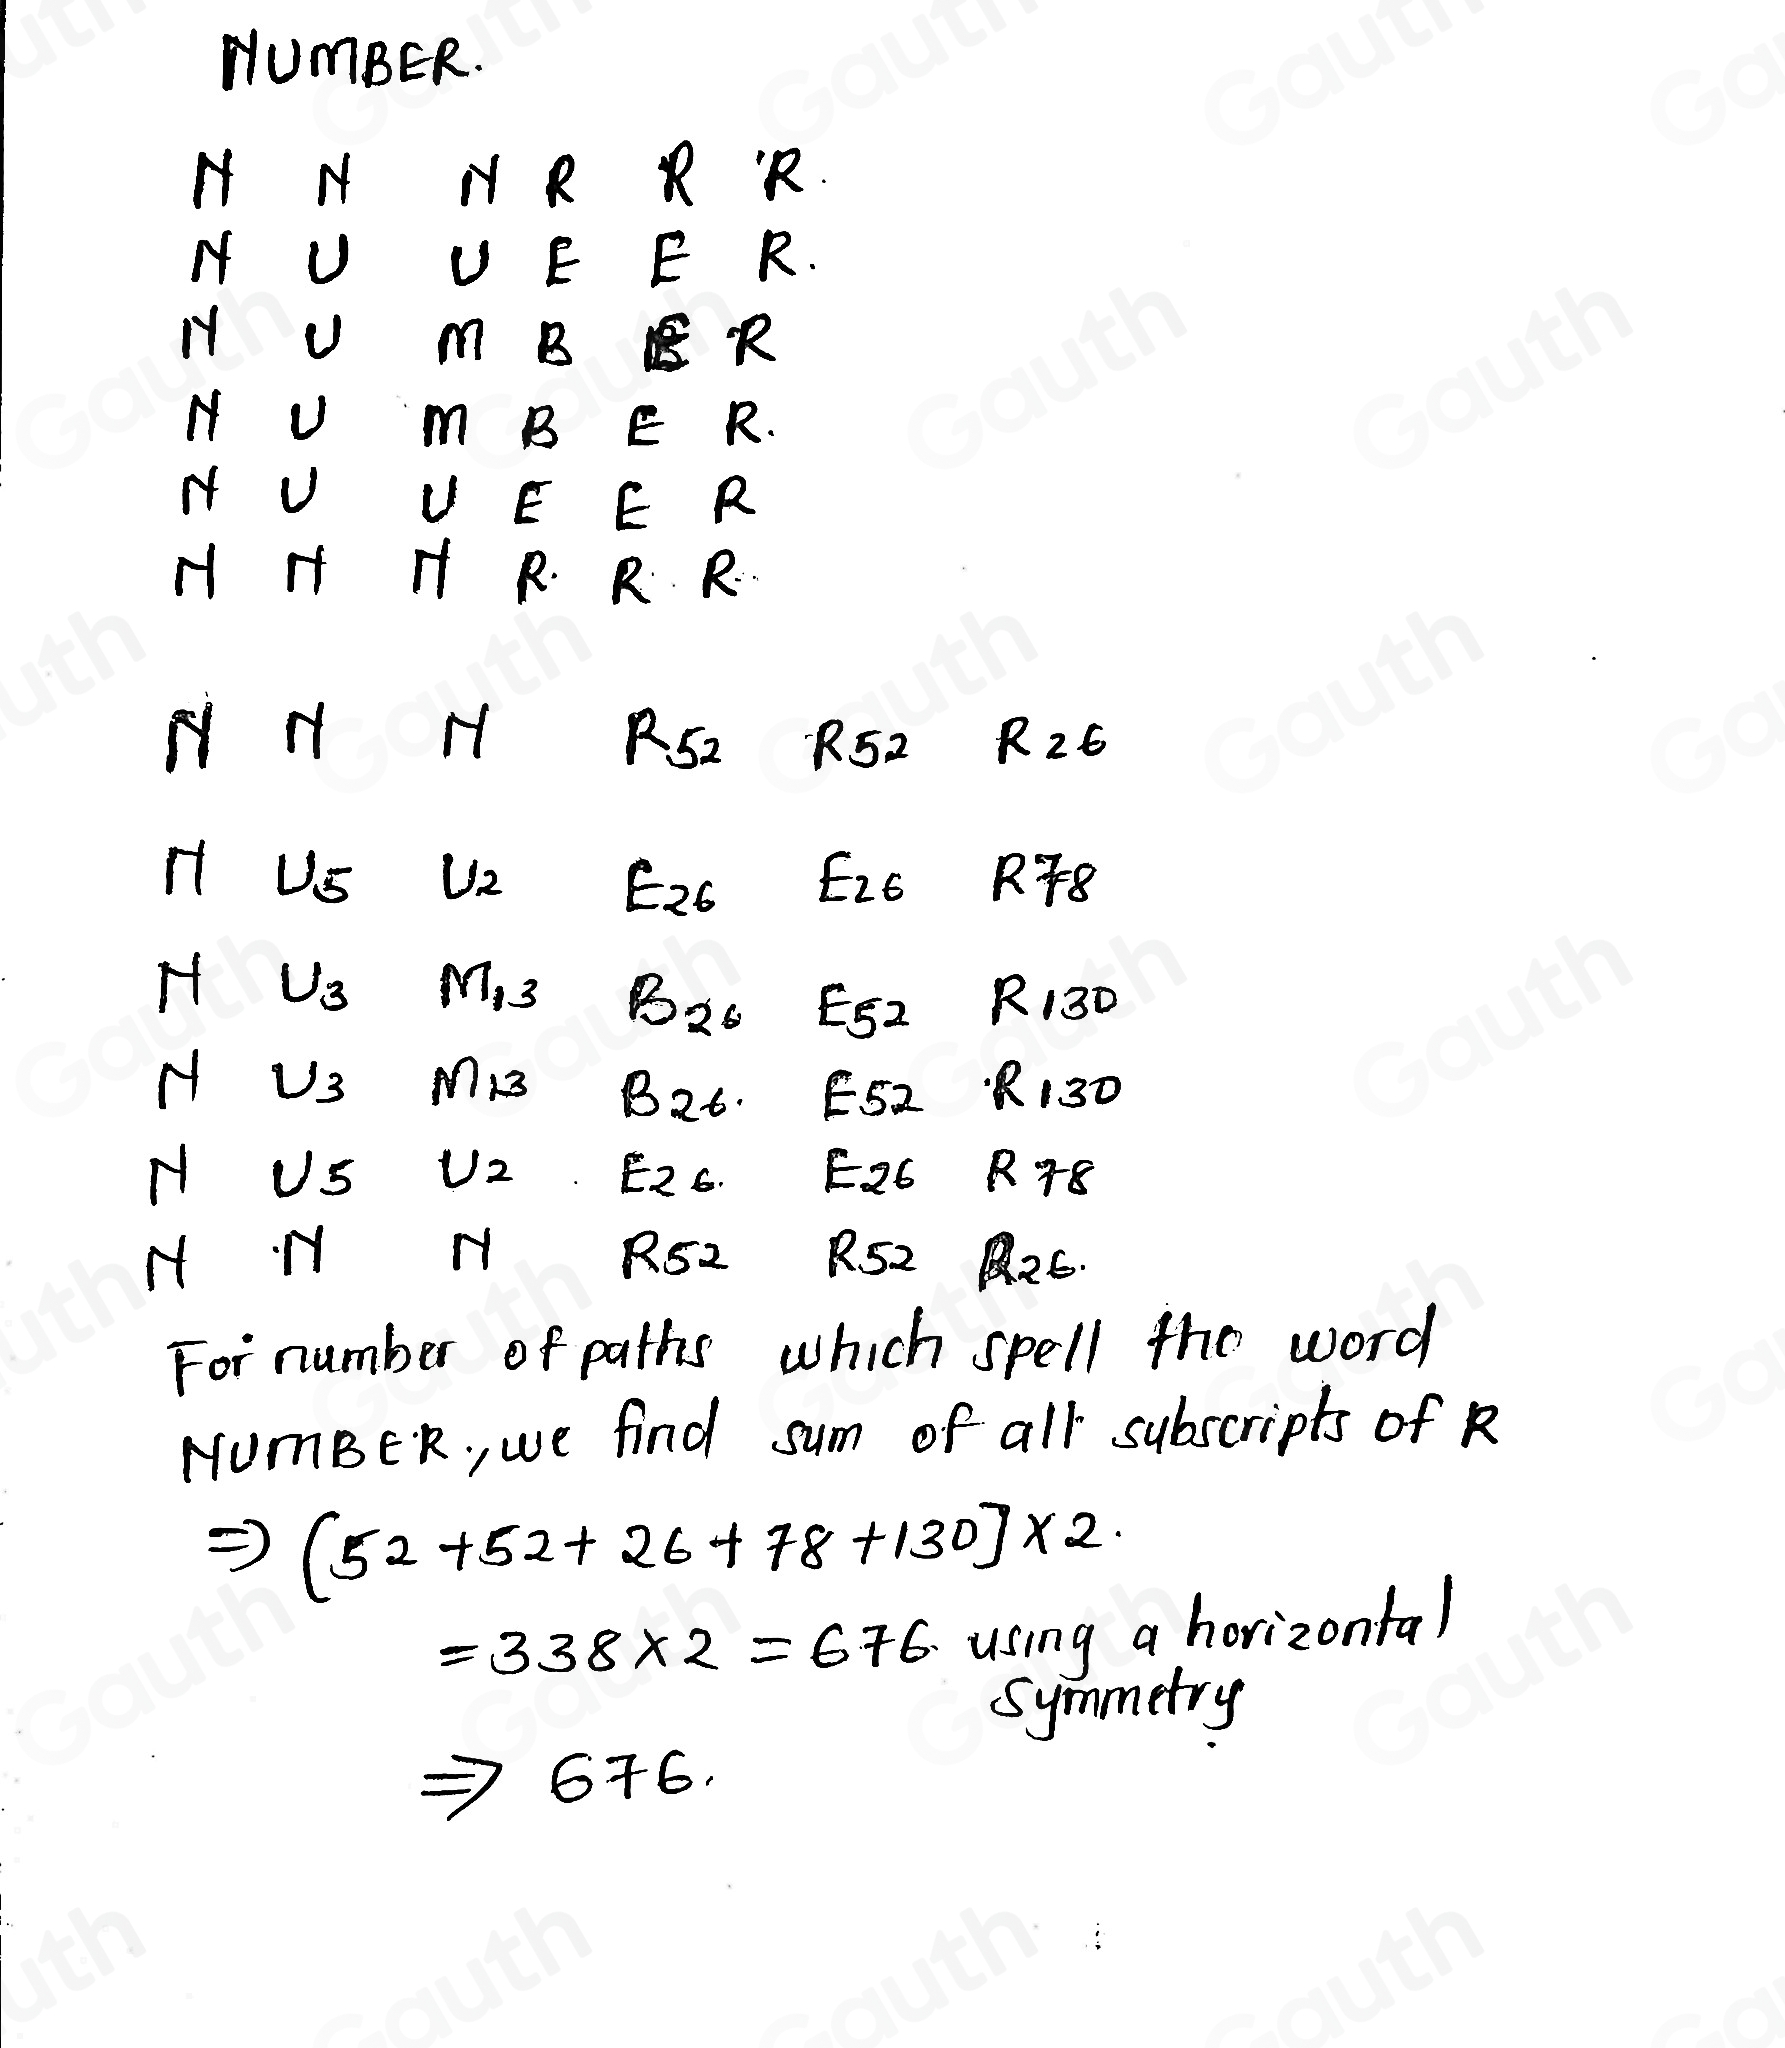 NUMBER.
N N N R R R.
N U U E E R.
N U M B E R
N U M B E R.
N U U E E R
N N N R. R. R.
N N N R52 R52 R26
N U5 U2 E26 E26 R78
N U3 M13 B26 E52 R130
N U3 M13 B26. E52 R130
N U5 U2 E26. E26 R78
N N N R52 R52 R26.
For number of paths which spell the word
NUMBER., we find sum of all subscripts of R
⇒ (52 + 52 + 26 + 78 + 130] × 2.
= 338 × 2 = 676. using a horizontal
symmetry.
⇒ 676.